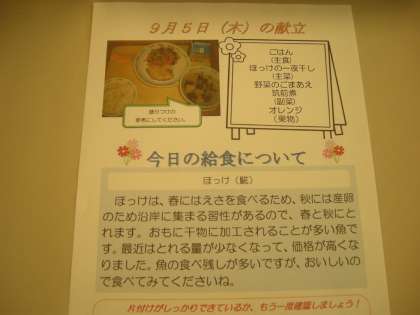 9月5日（木）の献立
ごはん
（主食）
ほっけの一夜干し
（主菜）
野菜のごまあえ
筑前煮
（副菜）
オレンジ
（果物）
盛りつけの
参考にしてください。
今日の給食について
ほっけ（𩸽）
ほっけは、春にはえさを食べるため、秋には産卵
のため沿岸に集まる習性があるので、春と秋にと
れます。おもに干物に加工されることが多い魚で
す。最近はとれる量が少なくなって、価格が高くな
りました。魚の食べ残しが多いですが、おいしいの
で食べてみてくださいね。
片付けがしっかりできているか、もう一度確認しましょう！